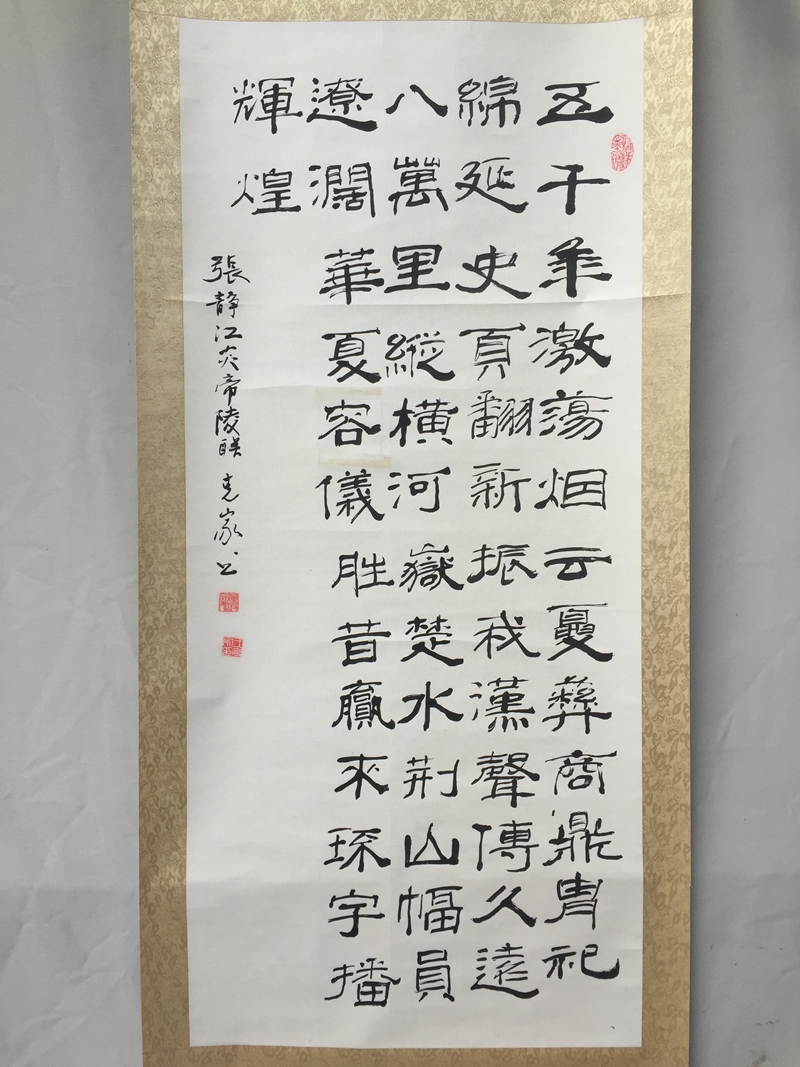 五千年激蕩烟云夏彝商鼎胄祀
綿延史頁翻新振我漢聲傳久遠
八萬里縱橫河嶽楚水荆山幅員
遼闊華夏容儀胜昔贏來琛宇播
輝煌
張静江炎帝陵联 克家书